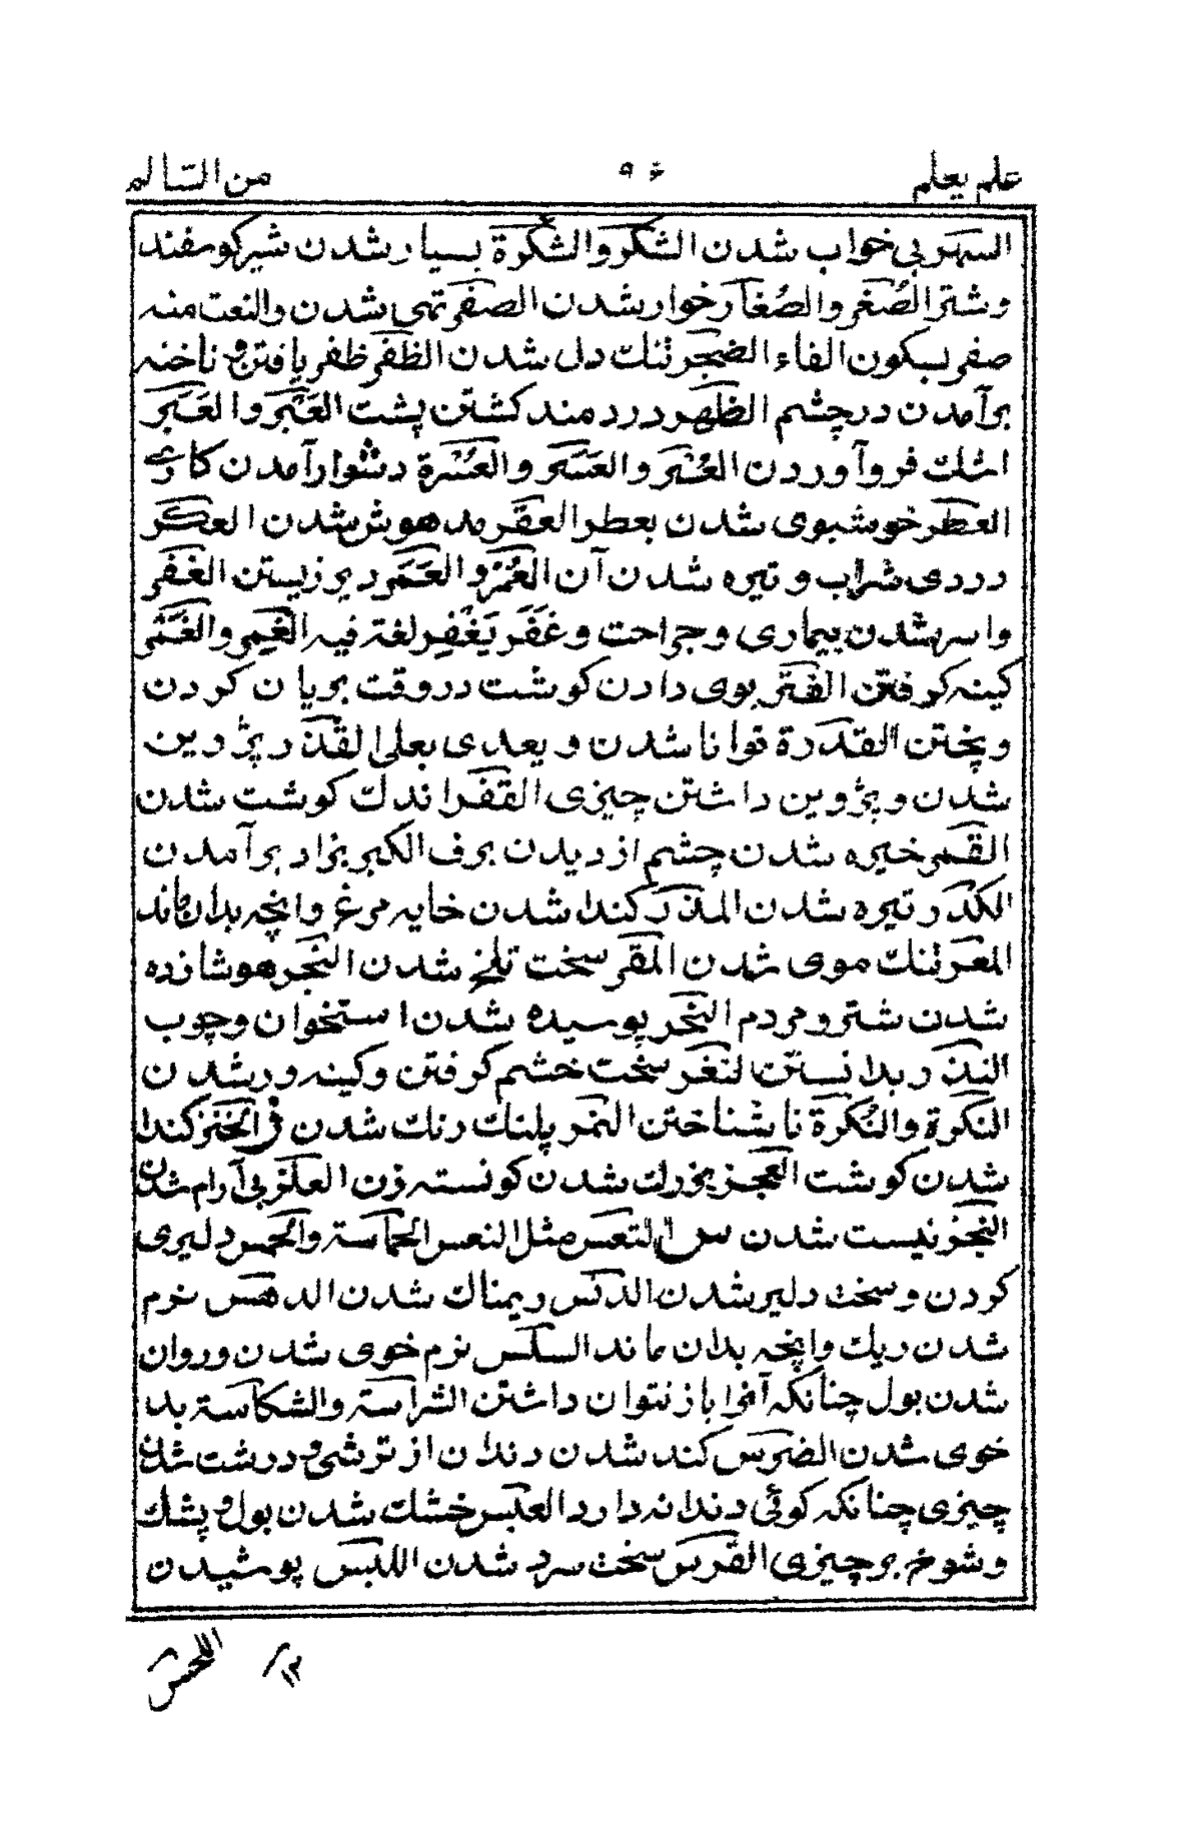 علم يعلم ۹۶ من السالم
السهر بی خواب شدن الشكر والشكرة بسیار شدن شیر کوسفند
وشتر الصُغر والصُغار خوار شدن الصفر تهی شدن والنعت منه
صفر بسکون الفاء الضجر تنك دل شدن الظفر ظفر یافتن و ناخنه
برآمدن در چشم الظهر دردمند کشتن پشت العَبْر والعَبَر
اشك فروآوردن العُسْر والعَسَر والعُسْرة دشوار آمدن کاری
العطر خوشبوی شدن بعطر العقر مدهوش شدن العکر
دردی شراب و تیره شدن آن العُمْر والعَمَر دیر زیستن الغفر
واسر شدن بیماری و جراحت وغَفَر يَغْفِر لغة فيه الغِمر والغَمَر
کینه کرفتن القتر بوی دادن کوشت در وقت بریان کردن
و پختن القدرة توانا شدن و یعدی بعلی القذر پژوین
شدن و پژوین داشتن چیزی القفر اندك کوشت شدن
القمر خیره شدن چشم از دیدن برف الكبر بزاد برآمدن
الكدر تیره شدن المذر کندا شدن خایه مرغ وانچه بدان ماند
المعر تنك موی شدن المقر سخت تلخ شدن النجر هوشازده
شدن شتر و مردم النخر پوسیده شدن استخوان وچوب
النذر بدانستن النغر سخت خشم کرفتن وکینه ور شدن
النكرة والنُكرة ناشناختن النمر پلنك رنك شدن ز الخنز کندا
شدن کوشت العجز بزرك شدن کونسته زن العلز بی آرام شدن
النجز نیست شدن س التعس مثل النعس الحماسة والحمس دلیری
کردن و سخت دلیر شدن الدنس ریمناك شدن الدهس نرم
شدن ریك وانچه بدان ماند السلس نرم خوی شدن وروان
شدن بول چنانکه آنرا باز نتوان داشتن الشراسة والشكاسة بد
خوی شدن الضرس کند شدن دندان از ترشی و درشت شدن
چیزی چنانکه کوئی دندانه دارد العبس خشك شدن بول و پشك
وشوخ بر چیزی القرس سخت سرد شدن اللبس پوشیدن
۱۲ اللحس